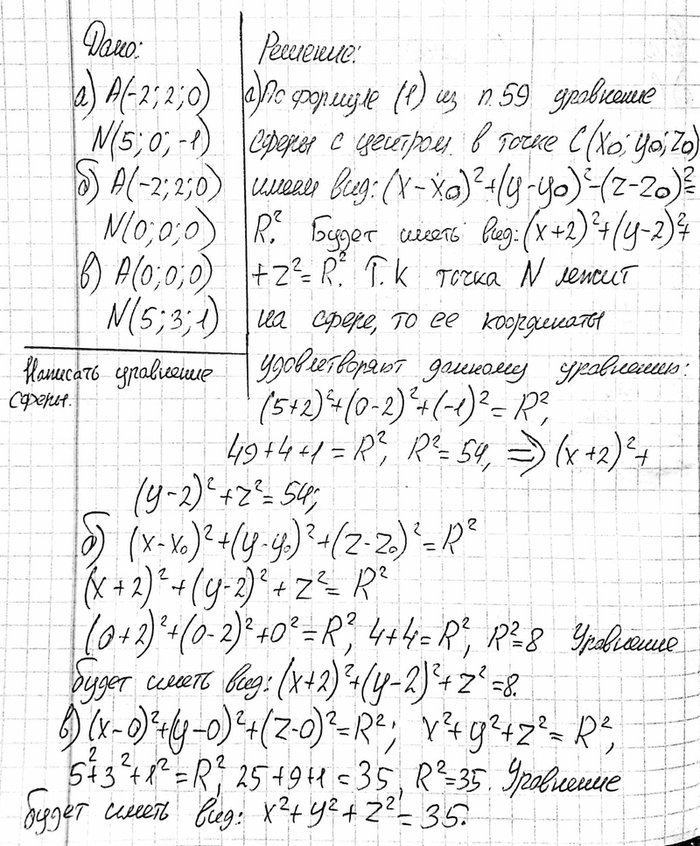 Дано:
а) A(-2; 2; 0)
N(5; 0; -1)
б) A(-2; 2; 0)
N(0; 0; 0)
в) A(0; 0; 0)
N(5; 3; 1)
Написать уравнение
сферы.
Решение:
а) По формуле (1) из п. 59 уравнение
сферы с центром в точке C(x₀; y₀; z₀)
имеем вид: (x-x₀)²+(y-y₀)²-(z-z₀)²=
R². Будет иметь вид: (x+2)²+(y-2)²+
+z²=R². Т.к точка N лежит
на сфере, то ее координаты
удовлетворяют данному уравнению:
(5+2)²+(0-2)²+(-1)²=R²,
49+4+1=R², R²=54, ⇒ (x+2)²+
(y-2)²+z²=54;
б) (x-x₀)²+(y-y₀)²+(z-z₀)²=R²
(x+2)²+(y-2)²+z²=R²
(0+2)²+(0-2)²+0²=R², 4+4=R², R²=8 Уравнение
будет иметь вид: (x+2)²+(y-2)²+z²=8.
в) (x-0)²+(y-0)²+(z-0)²=R²; x²+y²+z²=R²,
5²+3²+1²=R², 25+9+1=35, R²=35. Уравнение
будет иметь вид: x²+y²+z²=35.